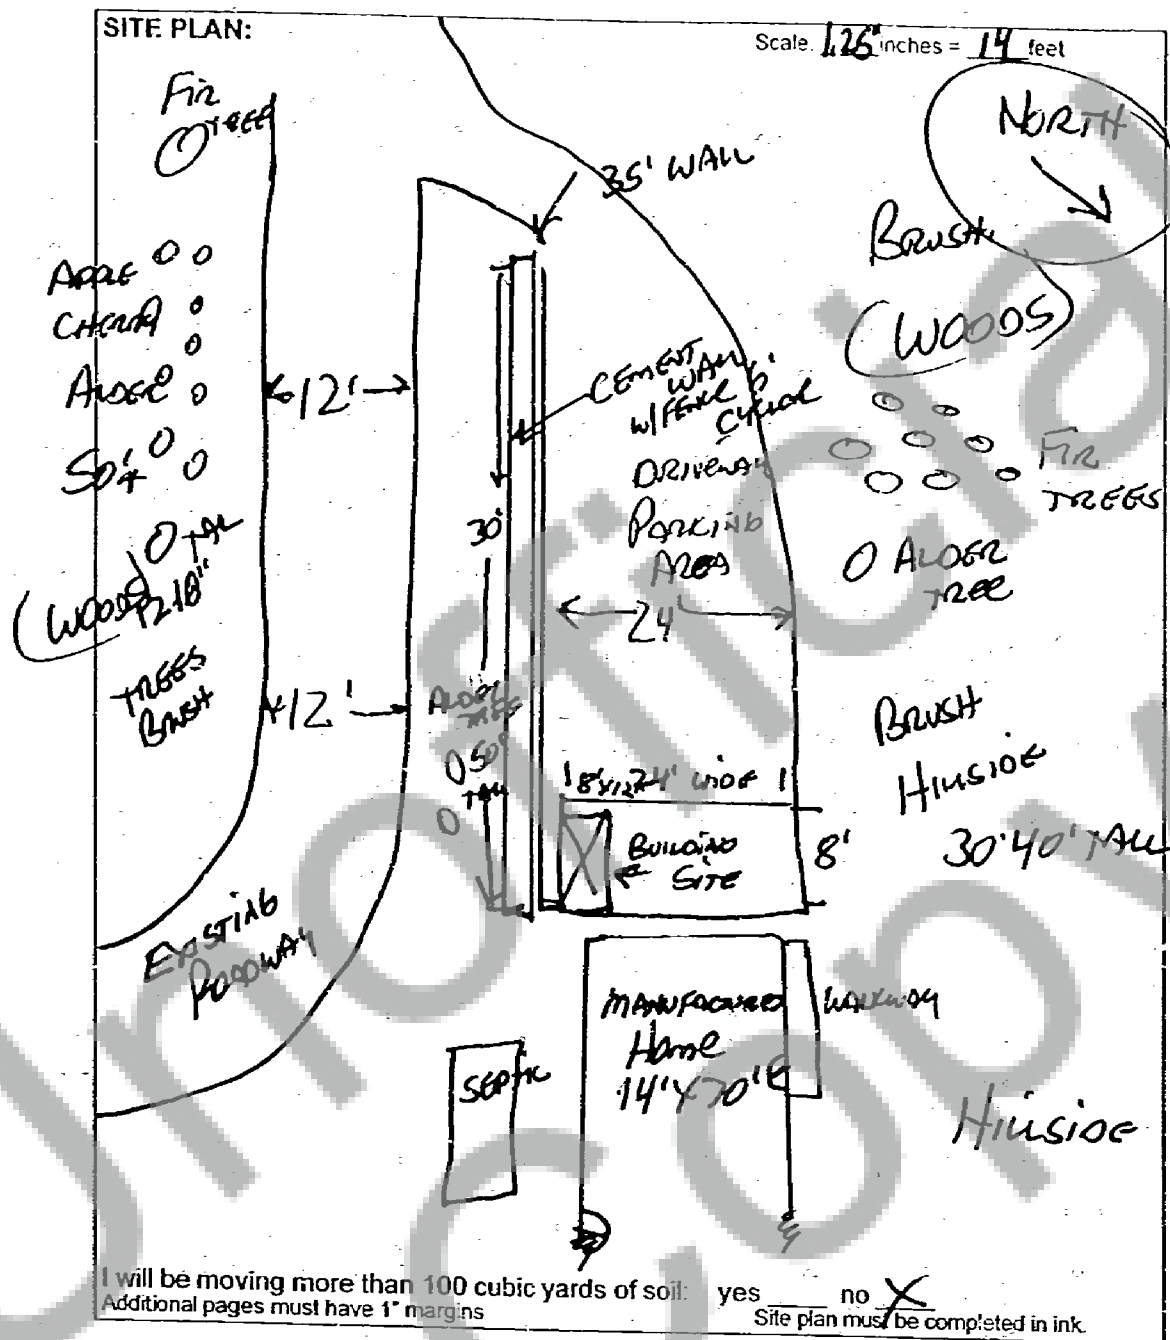 SITE PLAN:
Scale. 1.25" inches = 14 feet
FIR
TREE
NORTH
35' WALL
BRUSH
(WOODS)
APPLE
CHERRY
ALDER
50'
12'
CEMENT
WALL
W/FENCE 6'
CYCLONE
DRIVEWAY
PARKING
AREA
24'
FIR
TREES
ALDER
TREE
30'
TALL
(WOODS)
12-18"
TREES
BRUSH
12'
ALDER
TREE
50'
TALL
BRUSH
HILLSIDE
30'40' TALL
24' WIDE
BUILDING
SITE
8'
EXISTING
ROADWAY
MANUFACTURED
Home
14'X70'
WALKWAY
SEPTIC
HILLSIDE
I will be moving more than 100 cubic yards of soil: yes ____ no X
Additional pages must have 1" margins
Site plan must be completed in ink.
Unofficial
Copy